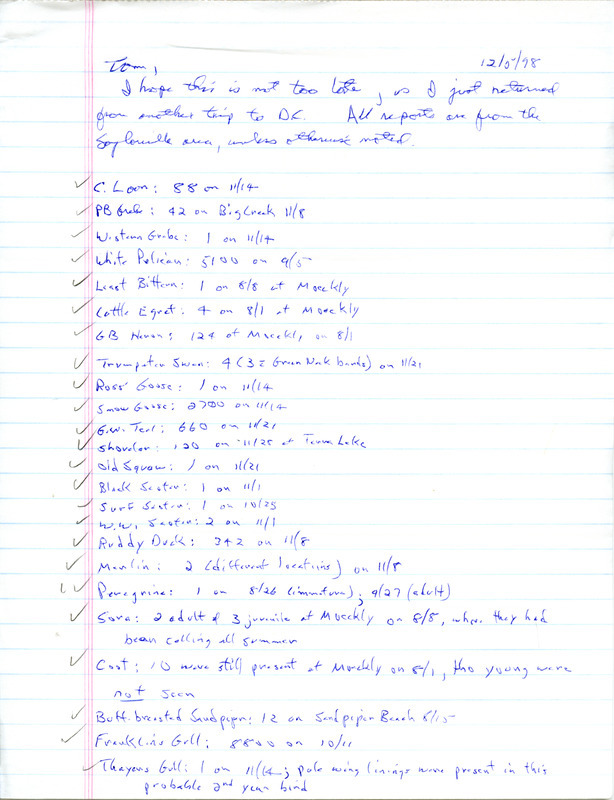 Tom, 12/5/98
I hope this is not too late, as I just returned
from another trip to DC. All reports are from the
Saylorville area, unless otherwise noted.
✓ C. Loon: 88 on 11/14
✓ PB Grebe: 42 on Big Creek 11/8
✓ Western Grebe: 1 on 11/14
✓ White Pelican: 5100 on 9/5
✓ Least Bittern: 1 on 8/8 at Moeckly
✓ Cattle Egret: 4 on 8/1 at Moeckly
✓ GB Heron: 124 at Moeckly on 8/1
✓ Trumpeter Swan: 4 (3 c̄ Green Neck bands) on 11/21
✓ Ross' Goose: 1 on 11/14
✓ Snow Goose: 2700 on 11/14
✓ G.W. Teal: 660 on 11/21
✓ Shoveler: 120 on 11/25 at Terra Lake
✓ Old Squaw: 1 on 11/21
✓ Black Scoter: 1 on 11/1
✓ Surf Scoter: 1 on 10/25
✓ W.W. Scoter: 2 on 11/1
✓ Ruddy Duck: 342 on 11/8
✓ Merlin: 2 (different locations) on 11/8
✓ Peregrine: 1 on 8/26 (immature); 9/27 (adult)
✓ Sora: 2 adult & 3 juvenile at Moeckly on 8/8, where they had
been calling all summer
✓ Coot: 10 were still present at Moeckly on 8/1, tho young were
not seen
✓ Buff-breasted Sandpiper: 12 on Sandpiper Beach 8/15
✓ Franklins Gull: 8800 on 10/11
✓ Thayers Gull: 1 on 11/14; pale wing linings were present in this
probable 2nd year bird